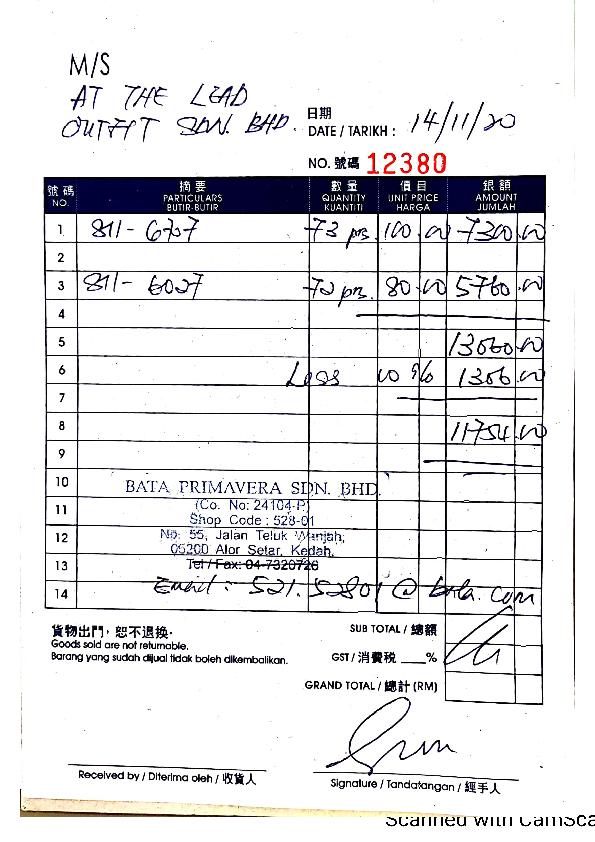 M/S
AT THE LEAD
OUTFIT SDN. BHD.
日期
DATE / TARIKH : 14/11/20
NO. 號碼 12380
號碼 NO. 摘要 PARTICULARS BUTIR-BUTIR 數量 QUANTITY KUANTITI 價目 UNIT PRICE HARGA 銀額 AMOUNT JUMLAH
1 811-6707 73 prs 100.00 7300.00
2
3 811-6027 72 prs. 80.00 5760.00
4
5 13060.00
6 Less 10% 1306.00
7
8 11754.00
9
10 BATA PRIMAVERA SDN. BHD.
11 (Co. No: 24104-P)
Shop Code : 528-01
12 No: 55, Jalan Teluk Wanjah,
05200 Alor Setar, Kedah.
13 Tel / Fax: 04-7320726
14 Email : 521.52801 @ bata.com
貨物出門，恕不退換·
Goods sold are not returnable.
Barang yang sudah dijual tidak boleh dikembalikan.
SUB TOTAL / 總額
GST / 消費税 ___%
GRAND TOTAL / 總計 (RM)
Received by / Diterima oleh / 收貨人
Signature / Tandatangan / 經手人
Scanned with CamSca